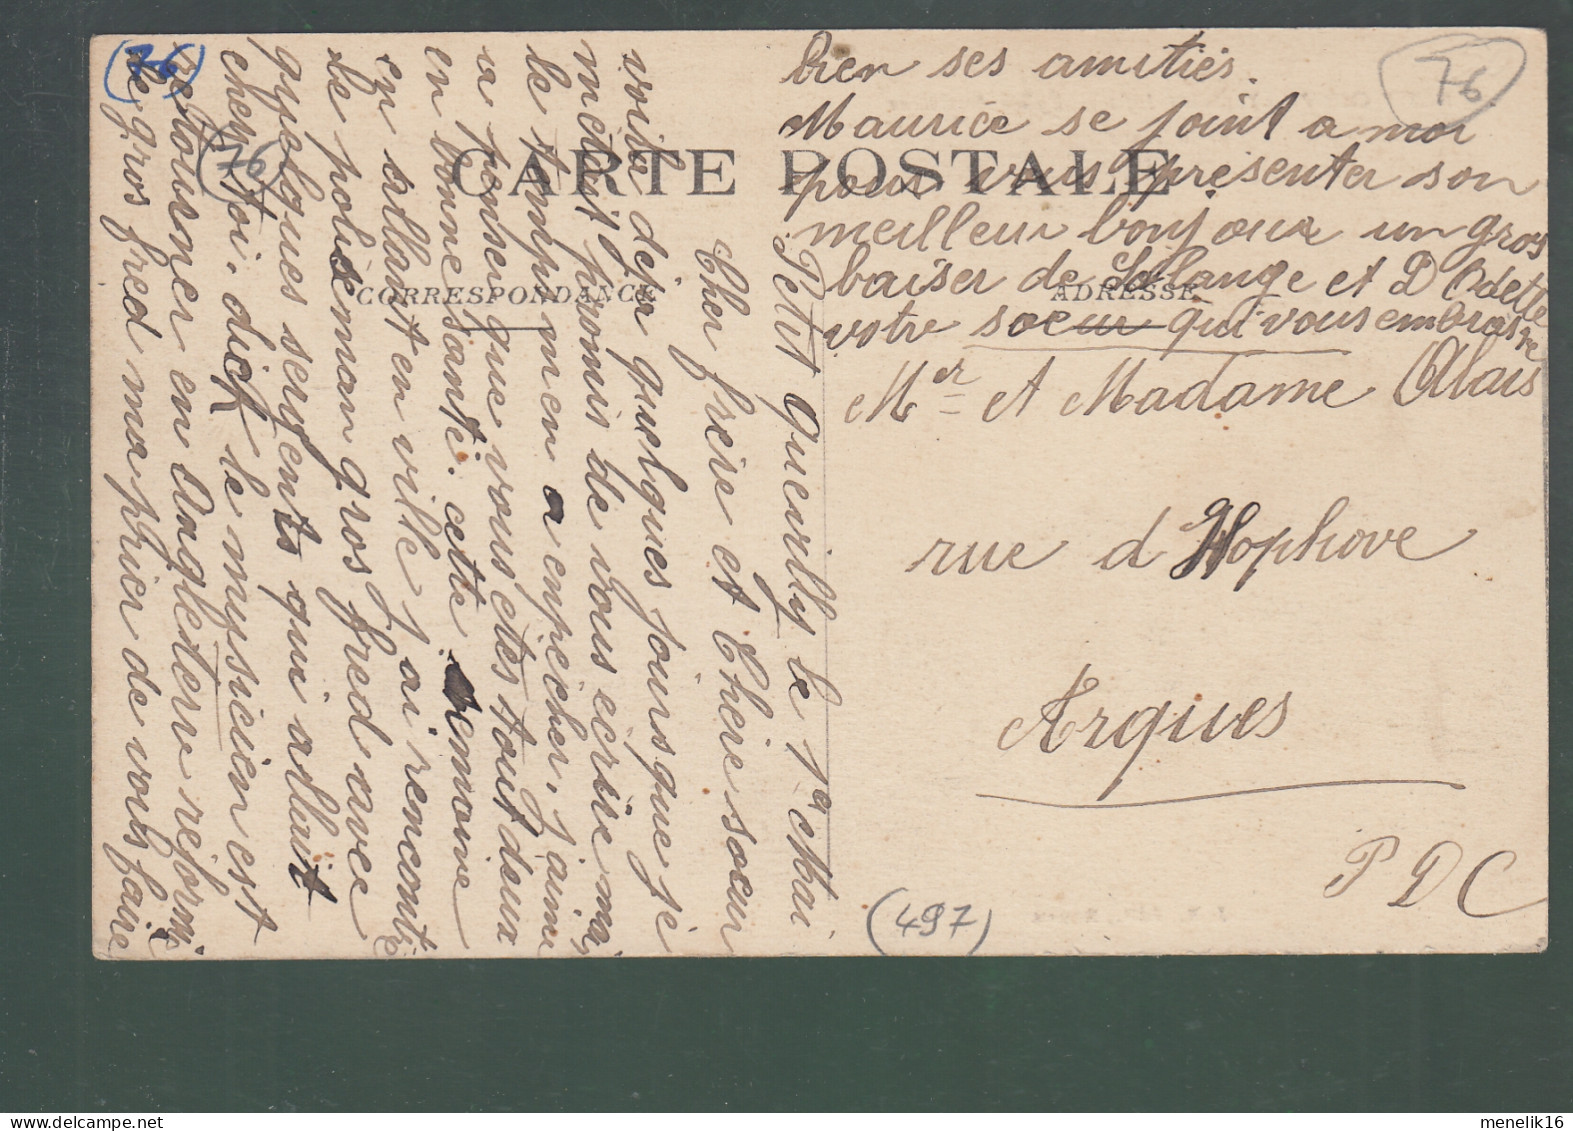 CARTE POSTALE
CORRESPONDANCE
ADRESSE
Petit quevilly le 1er Mai
Cher frère et Chère soeur
voila déja quelques jours que je
métait promis de vous écrire mai
le temp m'en a enpécher, j'aime
a penser que vous etes tout deux
en bonne santé. cette semaine
en allant en ville j'ai rencontré
le poliseman gros fred avec
quelques sergents qui allait
chez toi. dick le mysicien est
retourner en Angleterre reformé
le gros fred ma prier de vous faire
bien ses amitiés.
Maurice se joint a moi
pour vous présenter son
meilleur bonjour un gros
baiser de Solange et D Odette
votre soeur qui vous embrasse
Mr et Madame Alais
rue d Hophove
Arques
P D C
(76)
(76)
76
(497)
menelik16